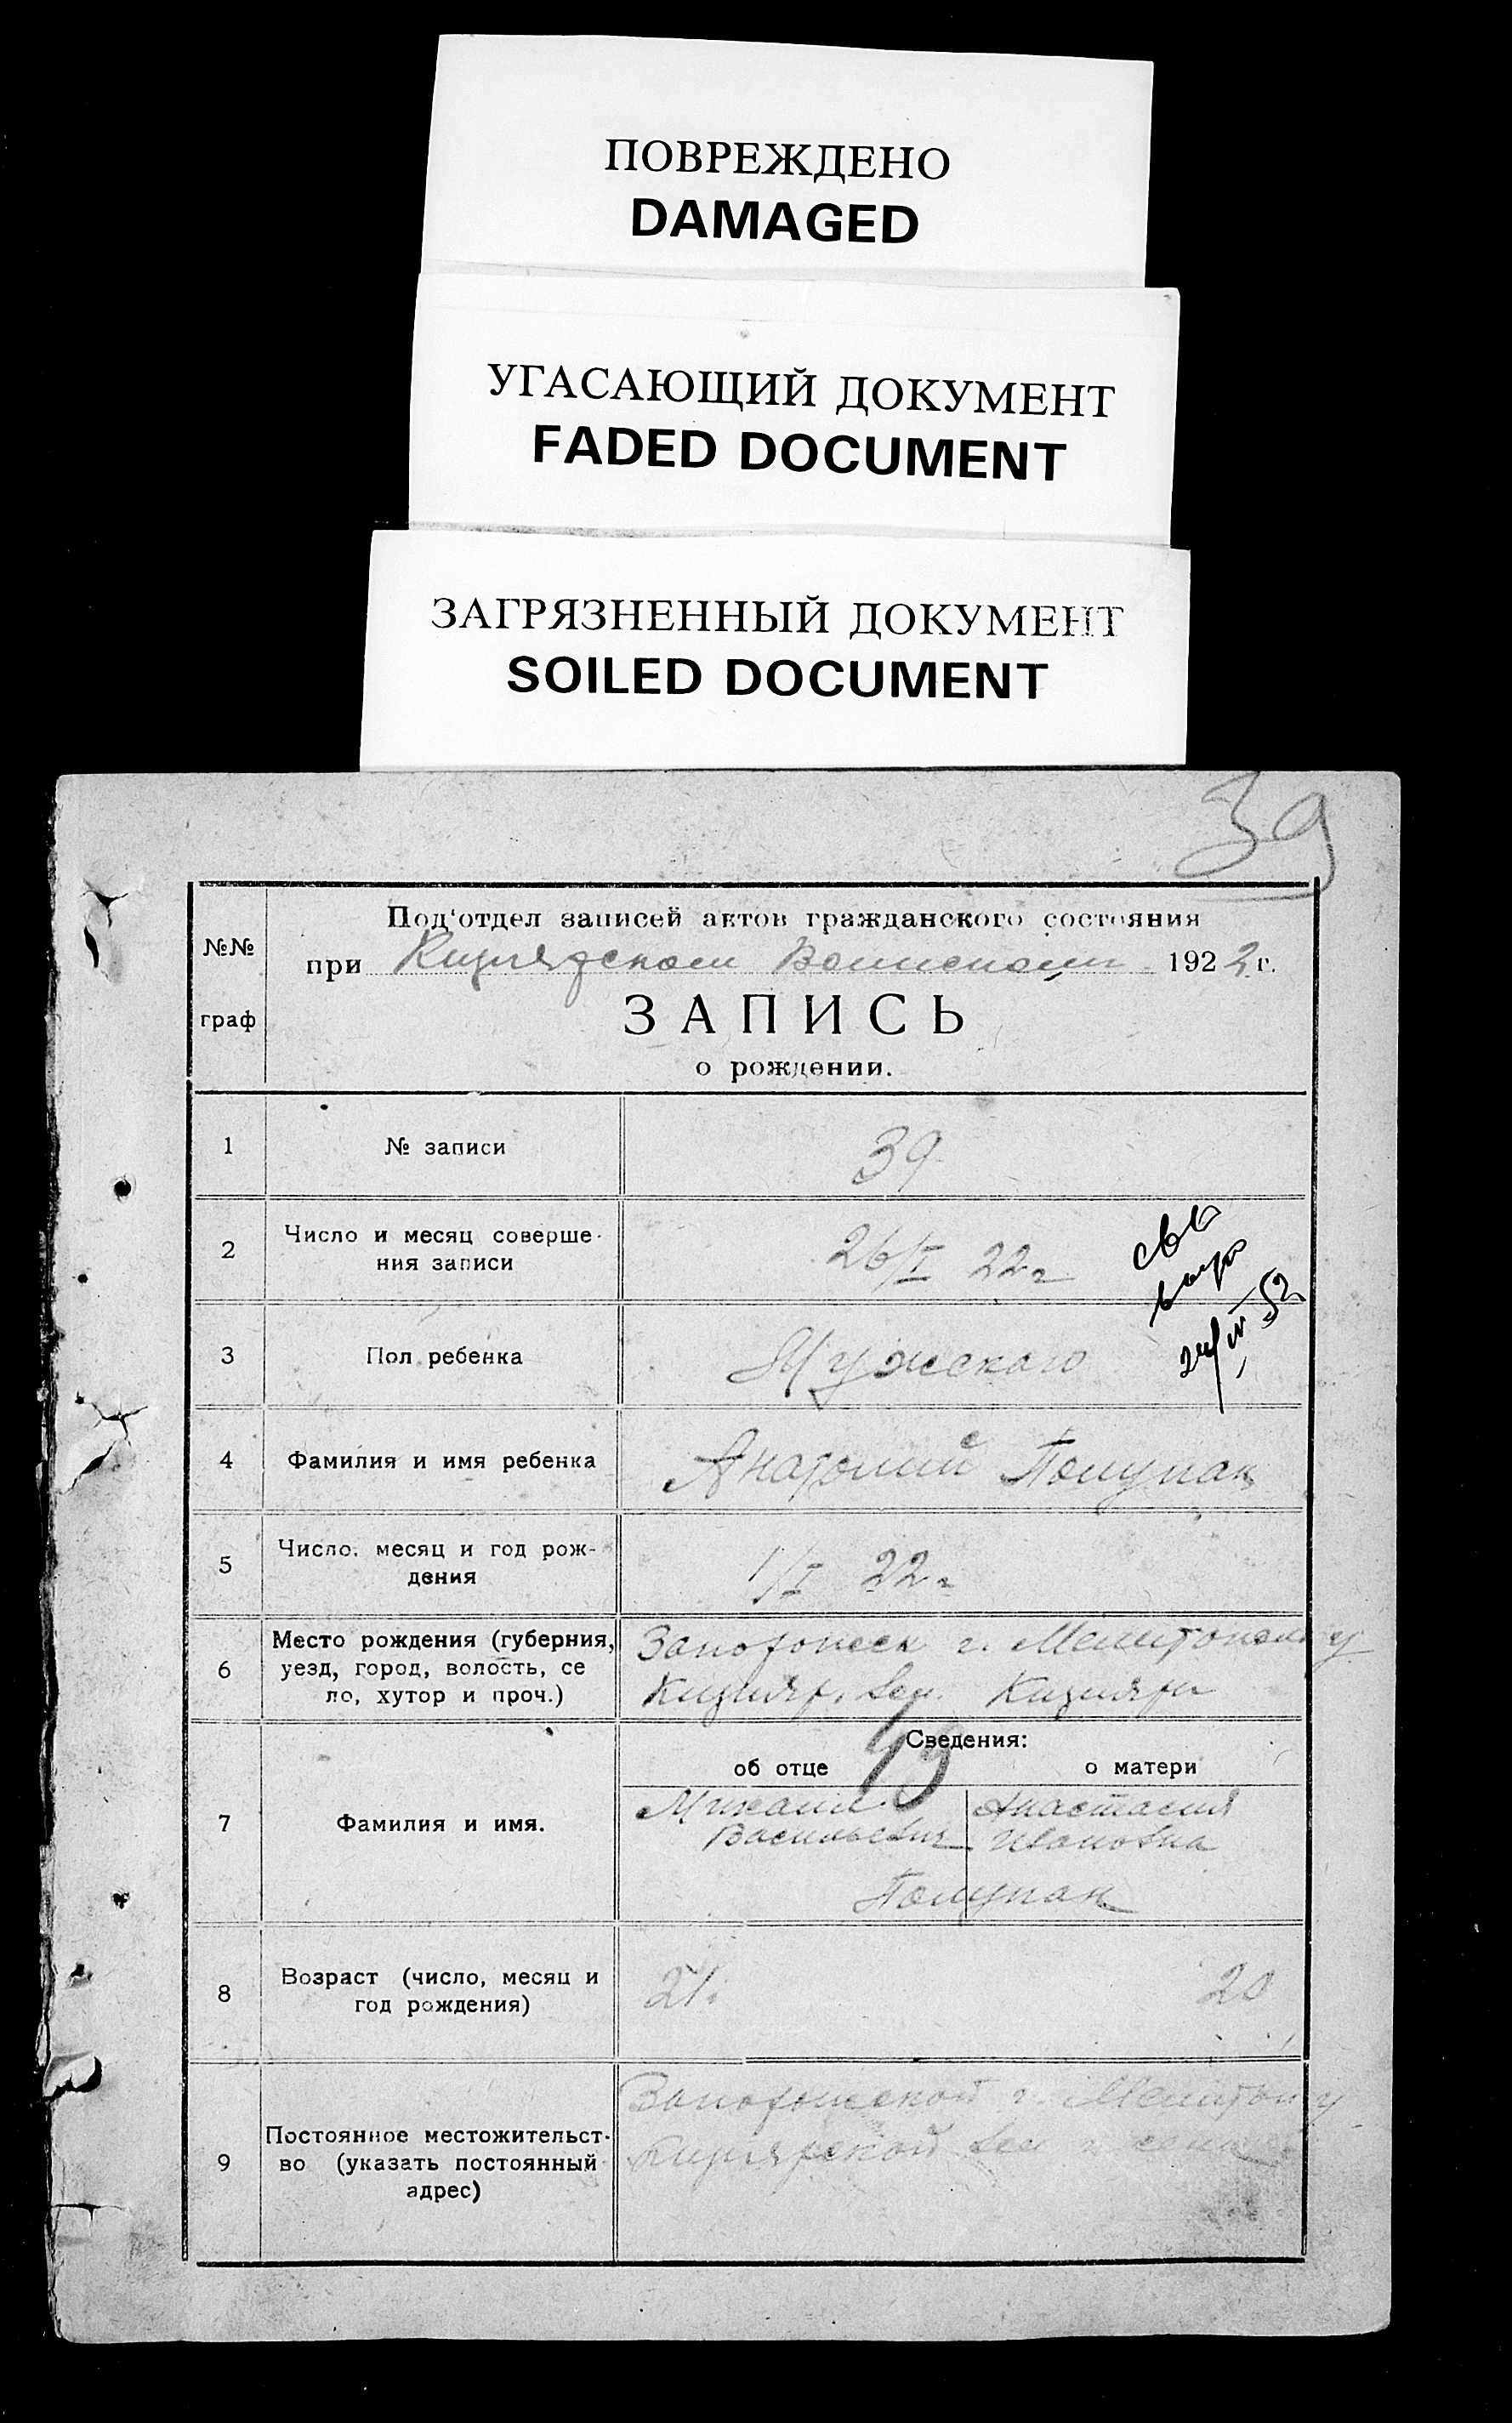 ПОВРЕЖДЕНО
DAMAGED
УГАСАЮЩИЙ ДОКУМЕНТ
FADED DOCUMENT
ЗАГРЯЗНЕННЫЙ ДОКУМЕНТ
SOILED DOCUMENT
39
№№
граф
Под'отдел записей актов гражданского состояния
при Кизиярском Волисполком 1922 г.
ЗАПИСЬ
о рождении.
1 № записи 39
2 Число и месяц соверше-
ния записи
26/I 22 г
24/IV 52
3 Пол ребенка Мужского
4 Фамилия и имя ребенка Анатолий Полупан
5 Число, месяц и год рож-
дения
1/I 22 г
6 Место рождения (губерния,
уезд, город, волость, се
ло, хутор и проч.)
Запорожск г. Мелитополь у
Кизияр. вол. Кизияры
43
Сведения:
об отце о матери
7 Фамилия и имя.
Михаил Анастасия
Васильевич Ивановна
Полупан
8 Возраст (число, месяц и
год рождения)
21. 20
9 Постоянное местожительст-
во (указать постоянный
адрес)
Запорожской г. Мелитоп у
Кизиярской вол